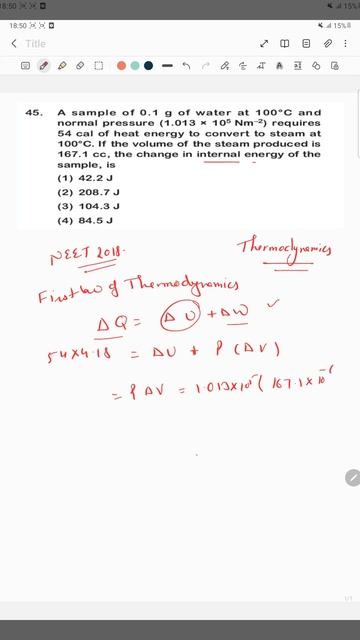 18:50
15%
18:50
15%
Title
45. A sample of 0.1 g of water at 100°C and
normal pressure (1.013 × 10⁵ Nm⁻²) requires
54 cal of heat energy to convert to steam at
100°C. If the volume of the steam produced is
167.1 cc, the change in internal energy of the
sample, is
(1) 42.2 J
(2) 208.7 J
(3) 104.3 J
(4) 84.5 J
NEET 2018.
Thermodynamics
First law of Thermodynamics
ΔQ = ΔU + ΔW ✓
54×4.18 = ΔU + P (ΔV)
= P ΔV = 1.013×10⁵ ( 167.1 × 10⁻⁶
1/1